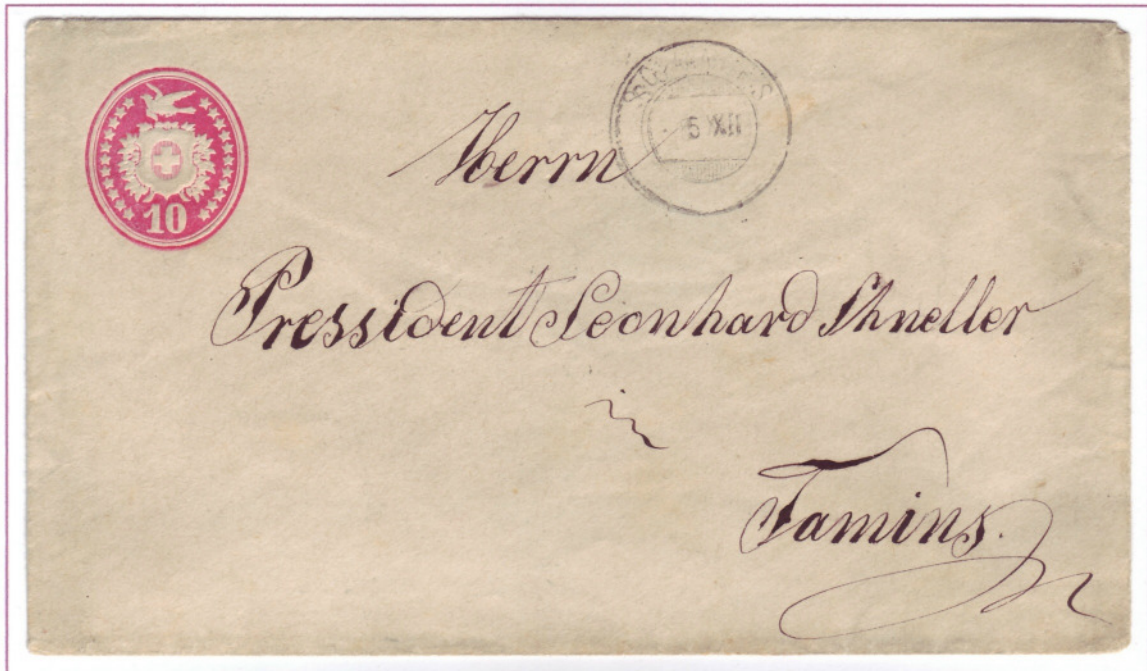 10
Herrn
Pressident Leonhard Shneller
in
Tamins.